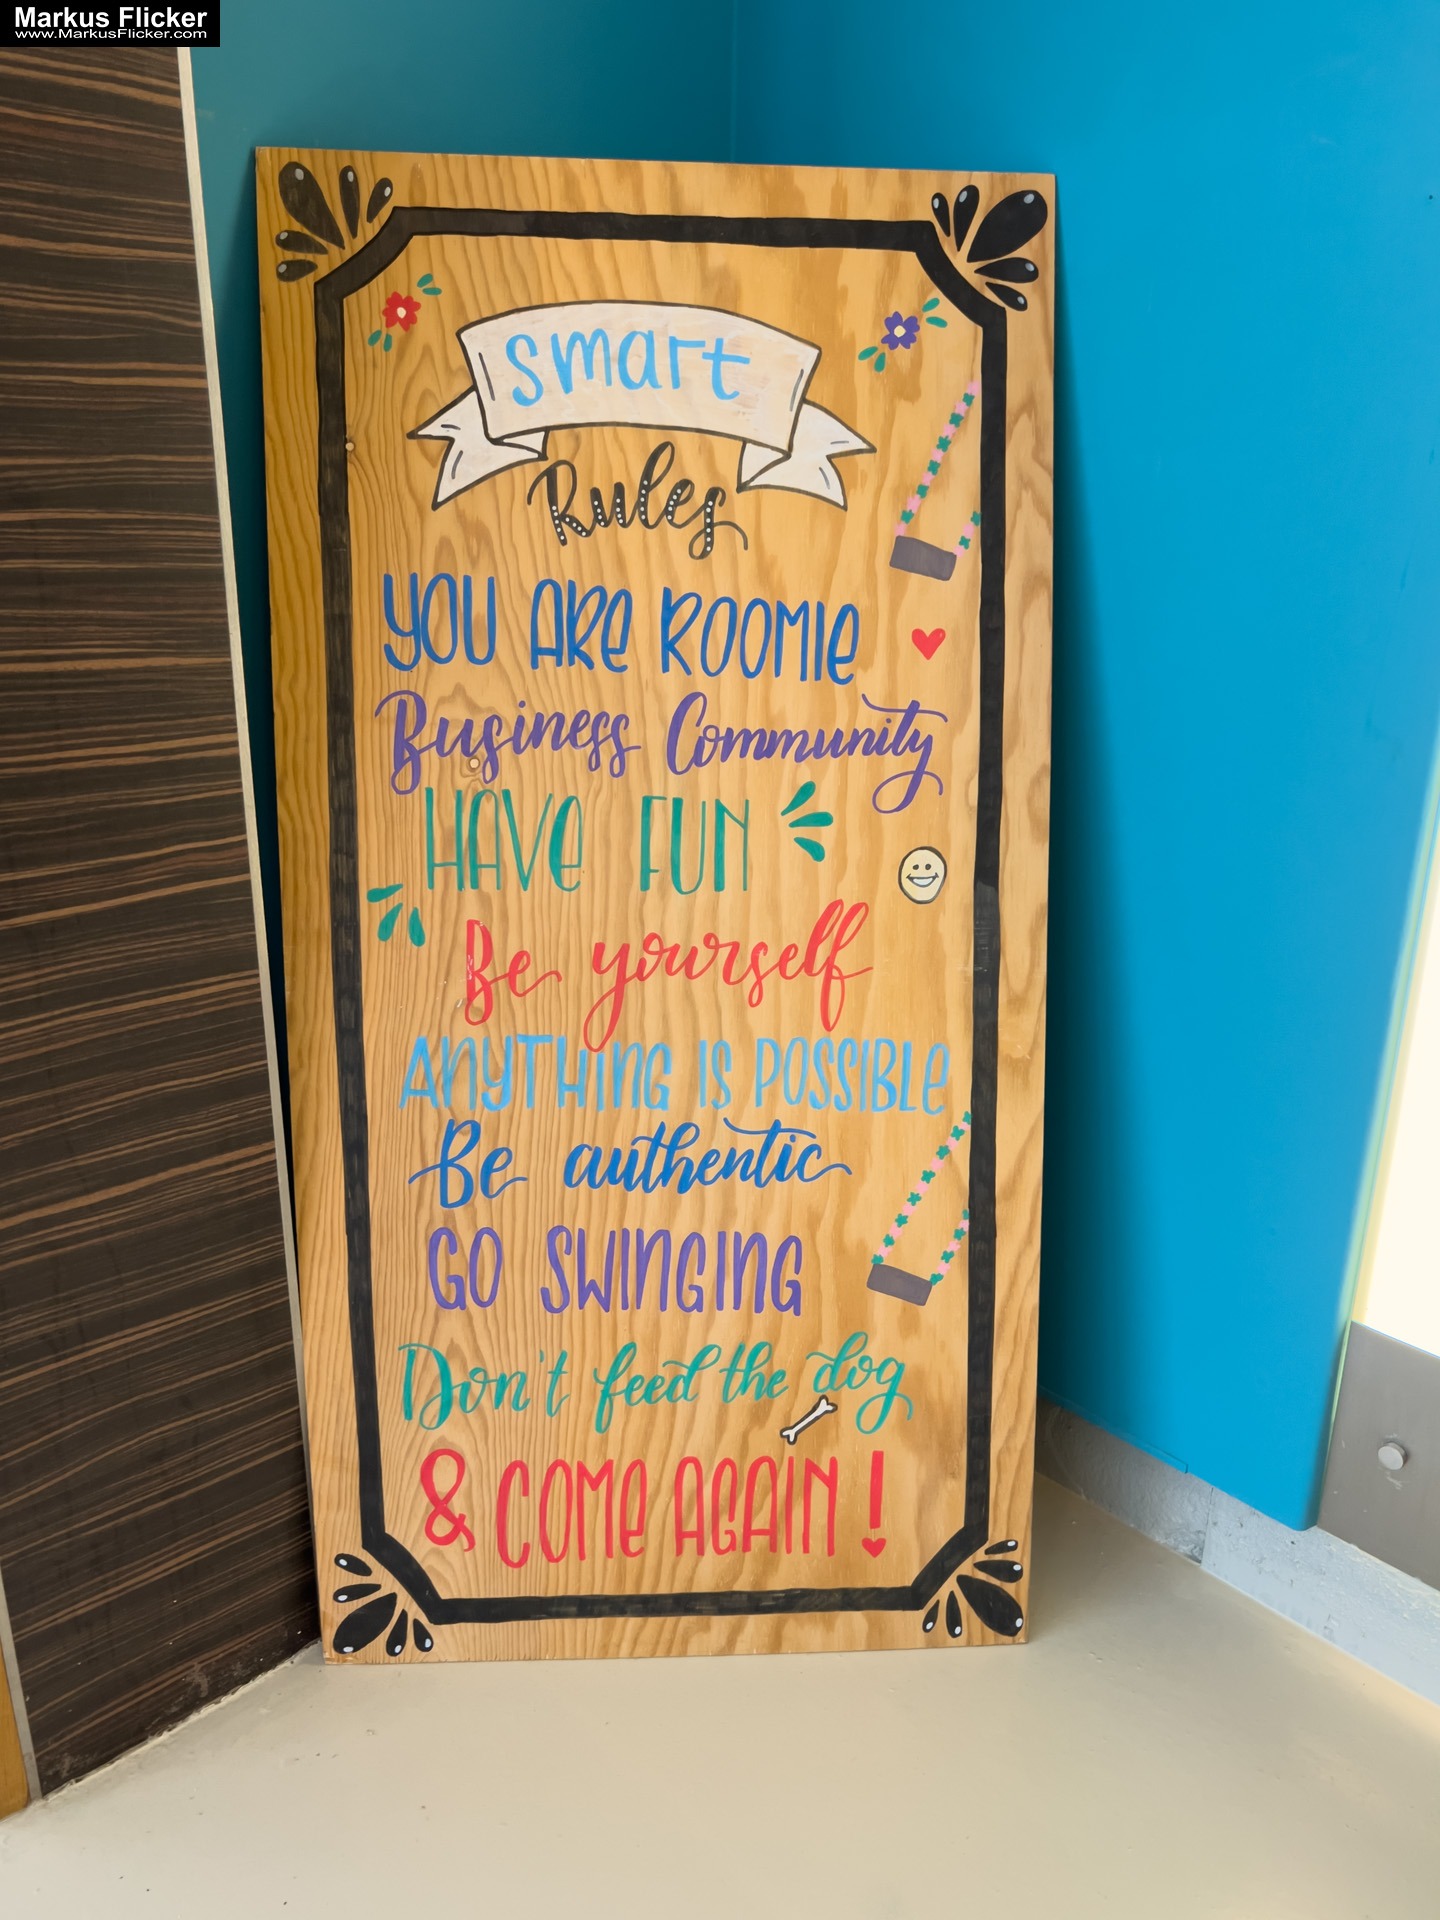 Markus Flicker
www.MarkusFlicker.com
smart
Rules
YOU ARE ROOMIE
Business Community
HAVE FUN
Be yourself
ANYTHING IS POSSIBLE
Be authentic
GO SWINGING
Don't feed the dog
& COME AGAIN!